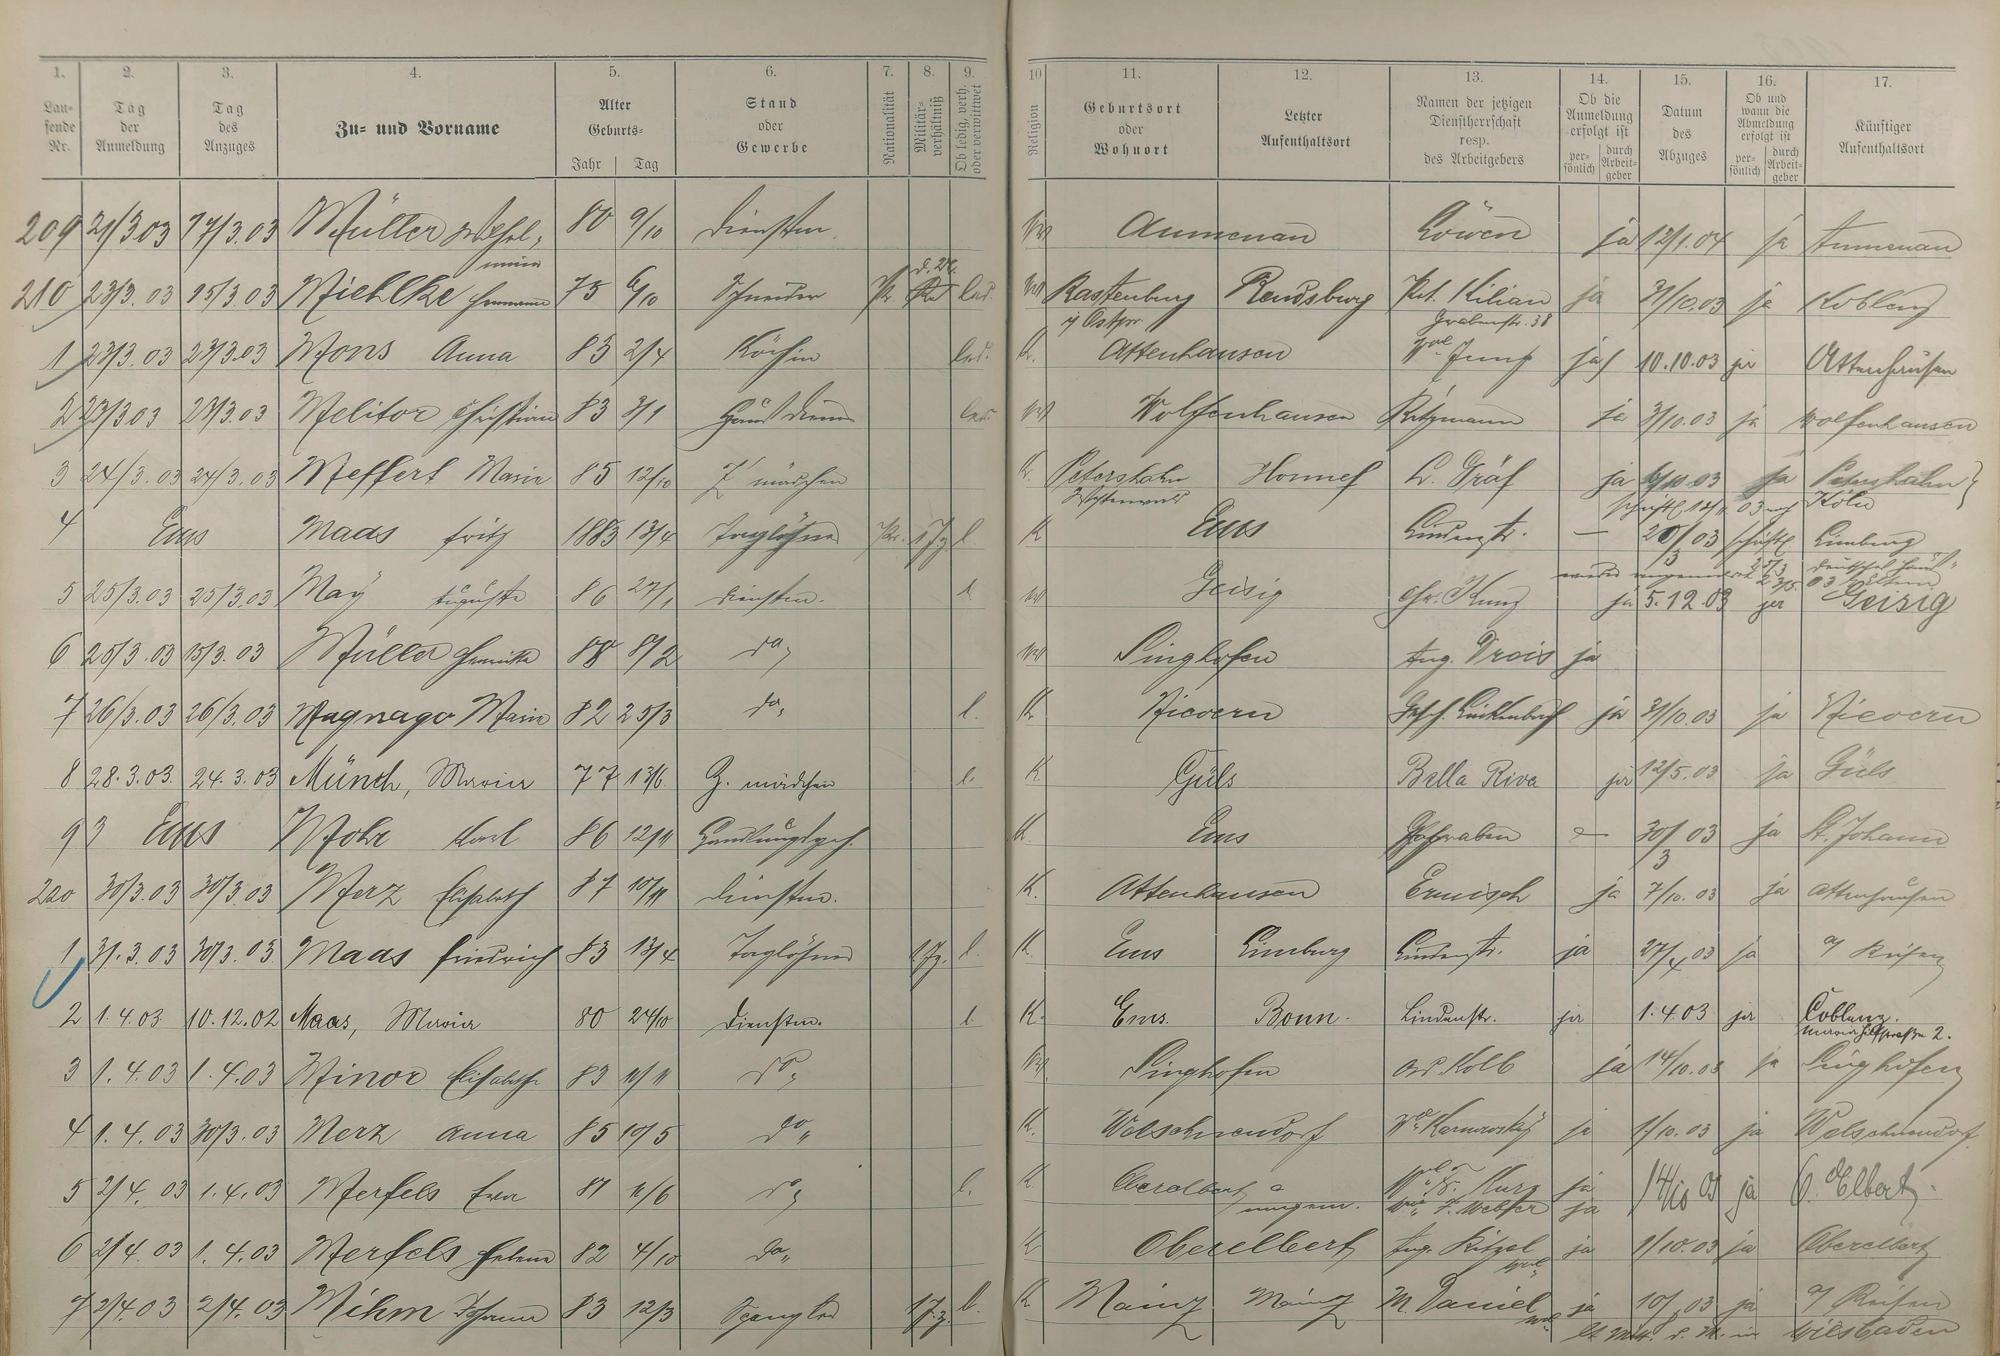 1. 2. 3. 4. 5. 6. 7. 8. 9. 10 11. 12. 13. 14. 15. 16. 17.
Lau-
fende
Nr.
Tag
der
Anmeldung
Tag
des
Anzuges
Zu- und Vorname
Alter
Geburts-
Jahr Tag
Stand
oder
Gewerbe
Nationalität
Militär-
verhältniß
Ob ledig, verh.
oder verwittwet
Religion
Geburtsort
oder
Wohnort
Letzter
Aufenthaltsort
Namen der jetzigen
Dienstherrschaft
resp.
des Arbeitgebers
Ob die
Anmeldung
erfolgt ist
per-
sönlich
durch
Arbeit-
geber
Datum
des
Abzuges
Ob und
wann die
Abmeldung
erfolgt ist
per-
sönlich
durch
Arbeit-
geber
Künftiger
Aufenthaltsort
209 21/3.03 17/3.03 Müller Wilhel- 80 9/10 Dienstm. Aumenau Löwen ja 12/1.04 ja Aumenau
mine
210 23/3.03 15/3.03 Miehlke Hermann 75 6/10 Schneider Pr. led. Rastenburg Rendsburg Pet. Kilian ja 31/10.03 ja Koblenz
i/ Ostpr. Grabenstr. 38
1 23/3.03 23/3.03 Mons Anna 83 2/4 Köchin led. K. Attenhausen Wwe Jung ja 10.10.03 ja Attenhausen
2 23/3.03 23/3.03 Melitor Christian 83 3/1 Hausdiener led. Wolfenhausen Ritzmann ja 3/10.03 ja Wolfenhausen
3 24/3.03 24/3.03 Meffert Marie 85 12/10 Z' mädchen K. Petershahn Honnef L. Gräf ja 6/10.03 ja Petershahn
Westerwald schriftl. 12/11.03 nach Köln
4 Ems Maas Fritz 1883 13/4 Taglöhner Pr. 1 Jg l K Ems Lindenstr. — 20/3 03 schriftl Limburg
5 25/3.03 25/3.03 May Auguste 86 27/1 Dienstm. l. Geisig Chr. Kunz ja 5.12.03 ja Geisig
6 25/3.03 15/3.03 Müller Henriette 88 8/2 do, Singhofen Aug. Trois ja
7 26/3.03 26/3.03 Magnago Marie 82 25/3 do, l. K. Nievern Gesch. Lückenbach ja 31/10.03 ja Nievern
8 28.3.03. 24.3.03 Münch, Maria 77 13/6 Z. mädchen l. K. Güls Bella Riva ja 12/5.03 ja Güls
9 Ems Mohr Karl 86 12/11 Handlungsgeh. K. Ems — 30/3 03 ja St. Johann
220 30/3.03 30/3.03 Merz Elisabeth 87 10/11 Dienstm. K. Attenhausen Ermisch ja 7/10.03 ja Attenhausen
1 31.3.03 30/3.03. Maas Friedrich 83 13/4 Taglöhner 1 Jg. l. K. Ems Limburg Lindenstr. ja 27/4 03 ja a/ Reisen
2 1.4.03. 10.12.02 Maas, Maria 80 24/10 Dienstm. l. K. Ems. Bonn. Lindenstr. ja 1.4.03 ja Coblenz.
3 1.4.03 1.4.03 Minor Elisabeth 83 11/11 do, Singhofen Kolb ja 14/10.03 ja Singhofen
4 1.4.03 30/3.03 Merz Anna 85 10/5 do, K. Welschneudorf ja 1/10.03 ja Welschneudorf
5 2/4.03 1.4.03 Merfels Eva 81 11/6 do, l. K Oberelbert Kurz ja 14/10 03 ja O. Elbert.
ja
6 2/4.03 1.4.03 Merfels Helene 82 4/10 do, K Oberelbert Aug. Kitzel ja 1/10.03 ja Oberelbert
7 2/4.03 2/4.03. Mihm Johann 83 12/3 Spengler 1 J.g. l. K Mainz Mainz M. Daniel ja 03 ja a/ Reisen
Wiesbaden